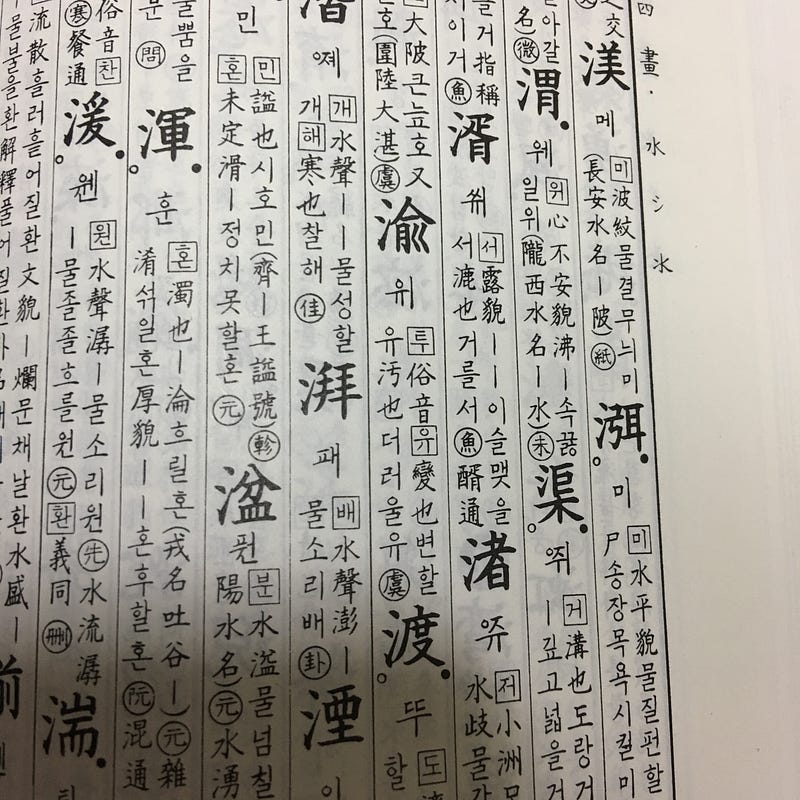 四畫·水氵氺
交
渼 메
미 波紋물결무늬미
(長安水名ㅣ陂) 紙
渳 미
미 水平貌물질펀할
尸송장목욕시킬미
날아갈
名) 微
渭 웨
위 心不安貌沸ㅣ속끓을
일위(隴西水名ㅣ水) 未
渠 쮜
거 溝也도랑거
ㅣ깊고넓을거
들거指稱
이거 魚
湑 쒸
서 露貌ㅣㅣ이슬맺을
서漉也거를서 魚 醑通
渚 쮸
저 小洲모
水歧물갈
大陂큰늪호又
호(圍陸大湛) 虞
渝 위
투 俗音 유 變也변할
유汚也더러울유 虞
渡 뚜
도 濟
할
湝 졔
개 水聲ㅣㅣ물성할
개 해 寒也찰해 佳
湃 패
배 水聲澎ㅣ
물소리배 卦
湮 이
민
민 諡也시호민(齊ㅣ王諡號) 軫
혼 未定滑ㅣ정치못할혼 元
湓 펀
분 水溢물넘칠
陽水名 元 水湧
물뿜을
분 問
渾 훈
혼 濁也ㅣ淪흐릴혼(戎名吐谷ㅣ) 元 雜
淆섞일혼厚貌ㅣㅣ혼후할혼 阮 混通
俗音 찬
寒 餐通
湲 웬
원 水聲潺ㅣ물소리원 先 水流潺
ㅣ물졸졸흐를원 元 환 義同 刪
湍
流散흘러흩어질환文貌ㅣ爛문채날환水盛ㅣ
물불을환解釋풀어질환